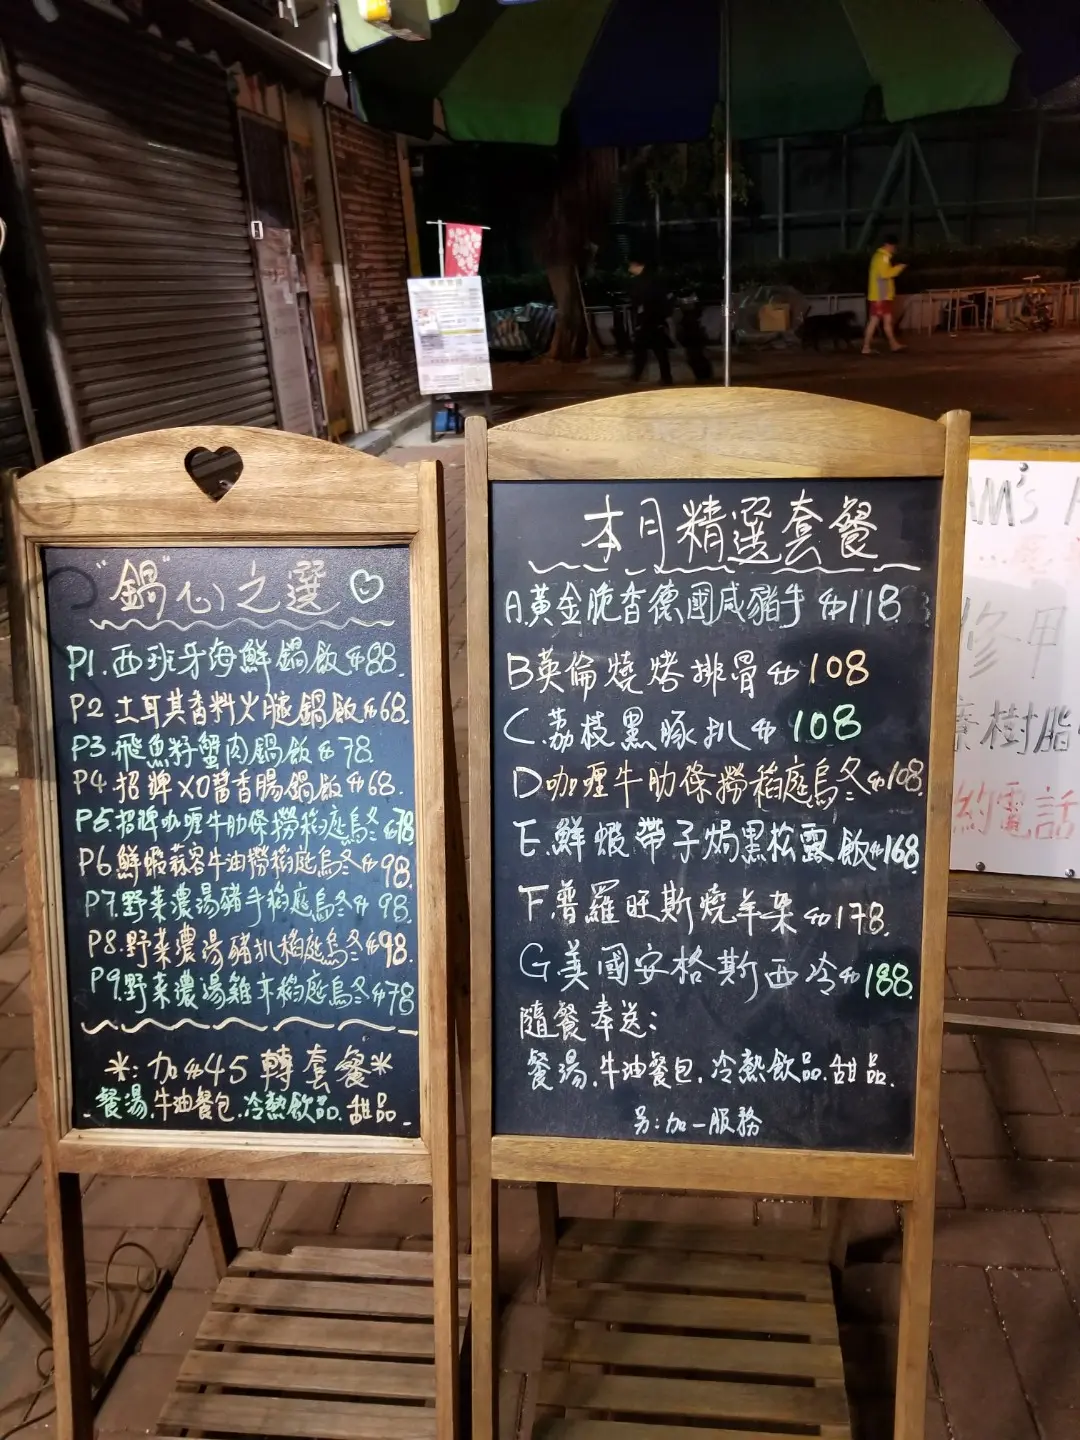 "鍋"心之選
P1.西班牙海鮮鍋飯$88.
P2 土耳其香料火腿鍋飯$68.
P3.飛魚籽蟹肉鍋飯$78
P4.招牌XO醬香腸鍋飯$68.
P5.招牌咖喱牛肋條撈稻庭烏冬$78
P6.鮮蝦蒜容牛油撈稻庭烏冬$98.
P7.野菜濃湯豬手稻庭烏冬$98.
P8.野菜濃湯豬扒稻庭烏冬$98.
P9.野菜濃湯雞木稻庭烏冬$78
*:加$45轉套餐*
餐湯.牛油餐包.冷熱飲品.甜品.
本月精選套餐
A.黃金脆香德國咸豬手$118
B英倫燒烤排骨$108
C.荔枝黑豚扒$108
D咖喱牛肋條撈稻庭烏冬$108.
E.鮮蝦帶子焗黑松露飯$168.
F.普羅旺斯燒羊架$178.
G.美國安格斯西冷$188.
隨餐奉送:
餐湯.牛油餐包.冷熱飲品.甜品.
另:加一服務
AM's
修甲
樹脂
約電話